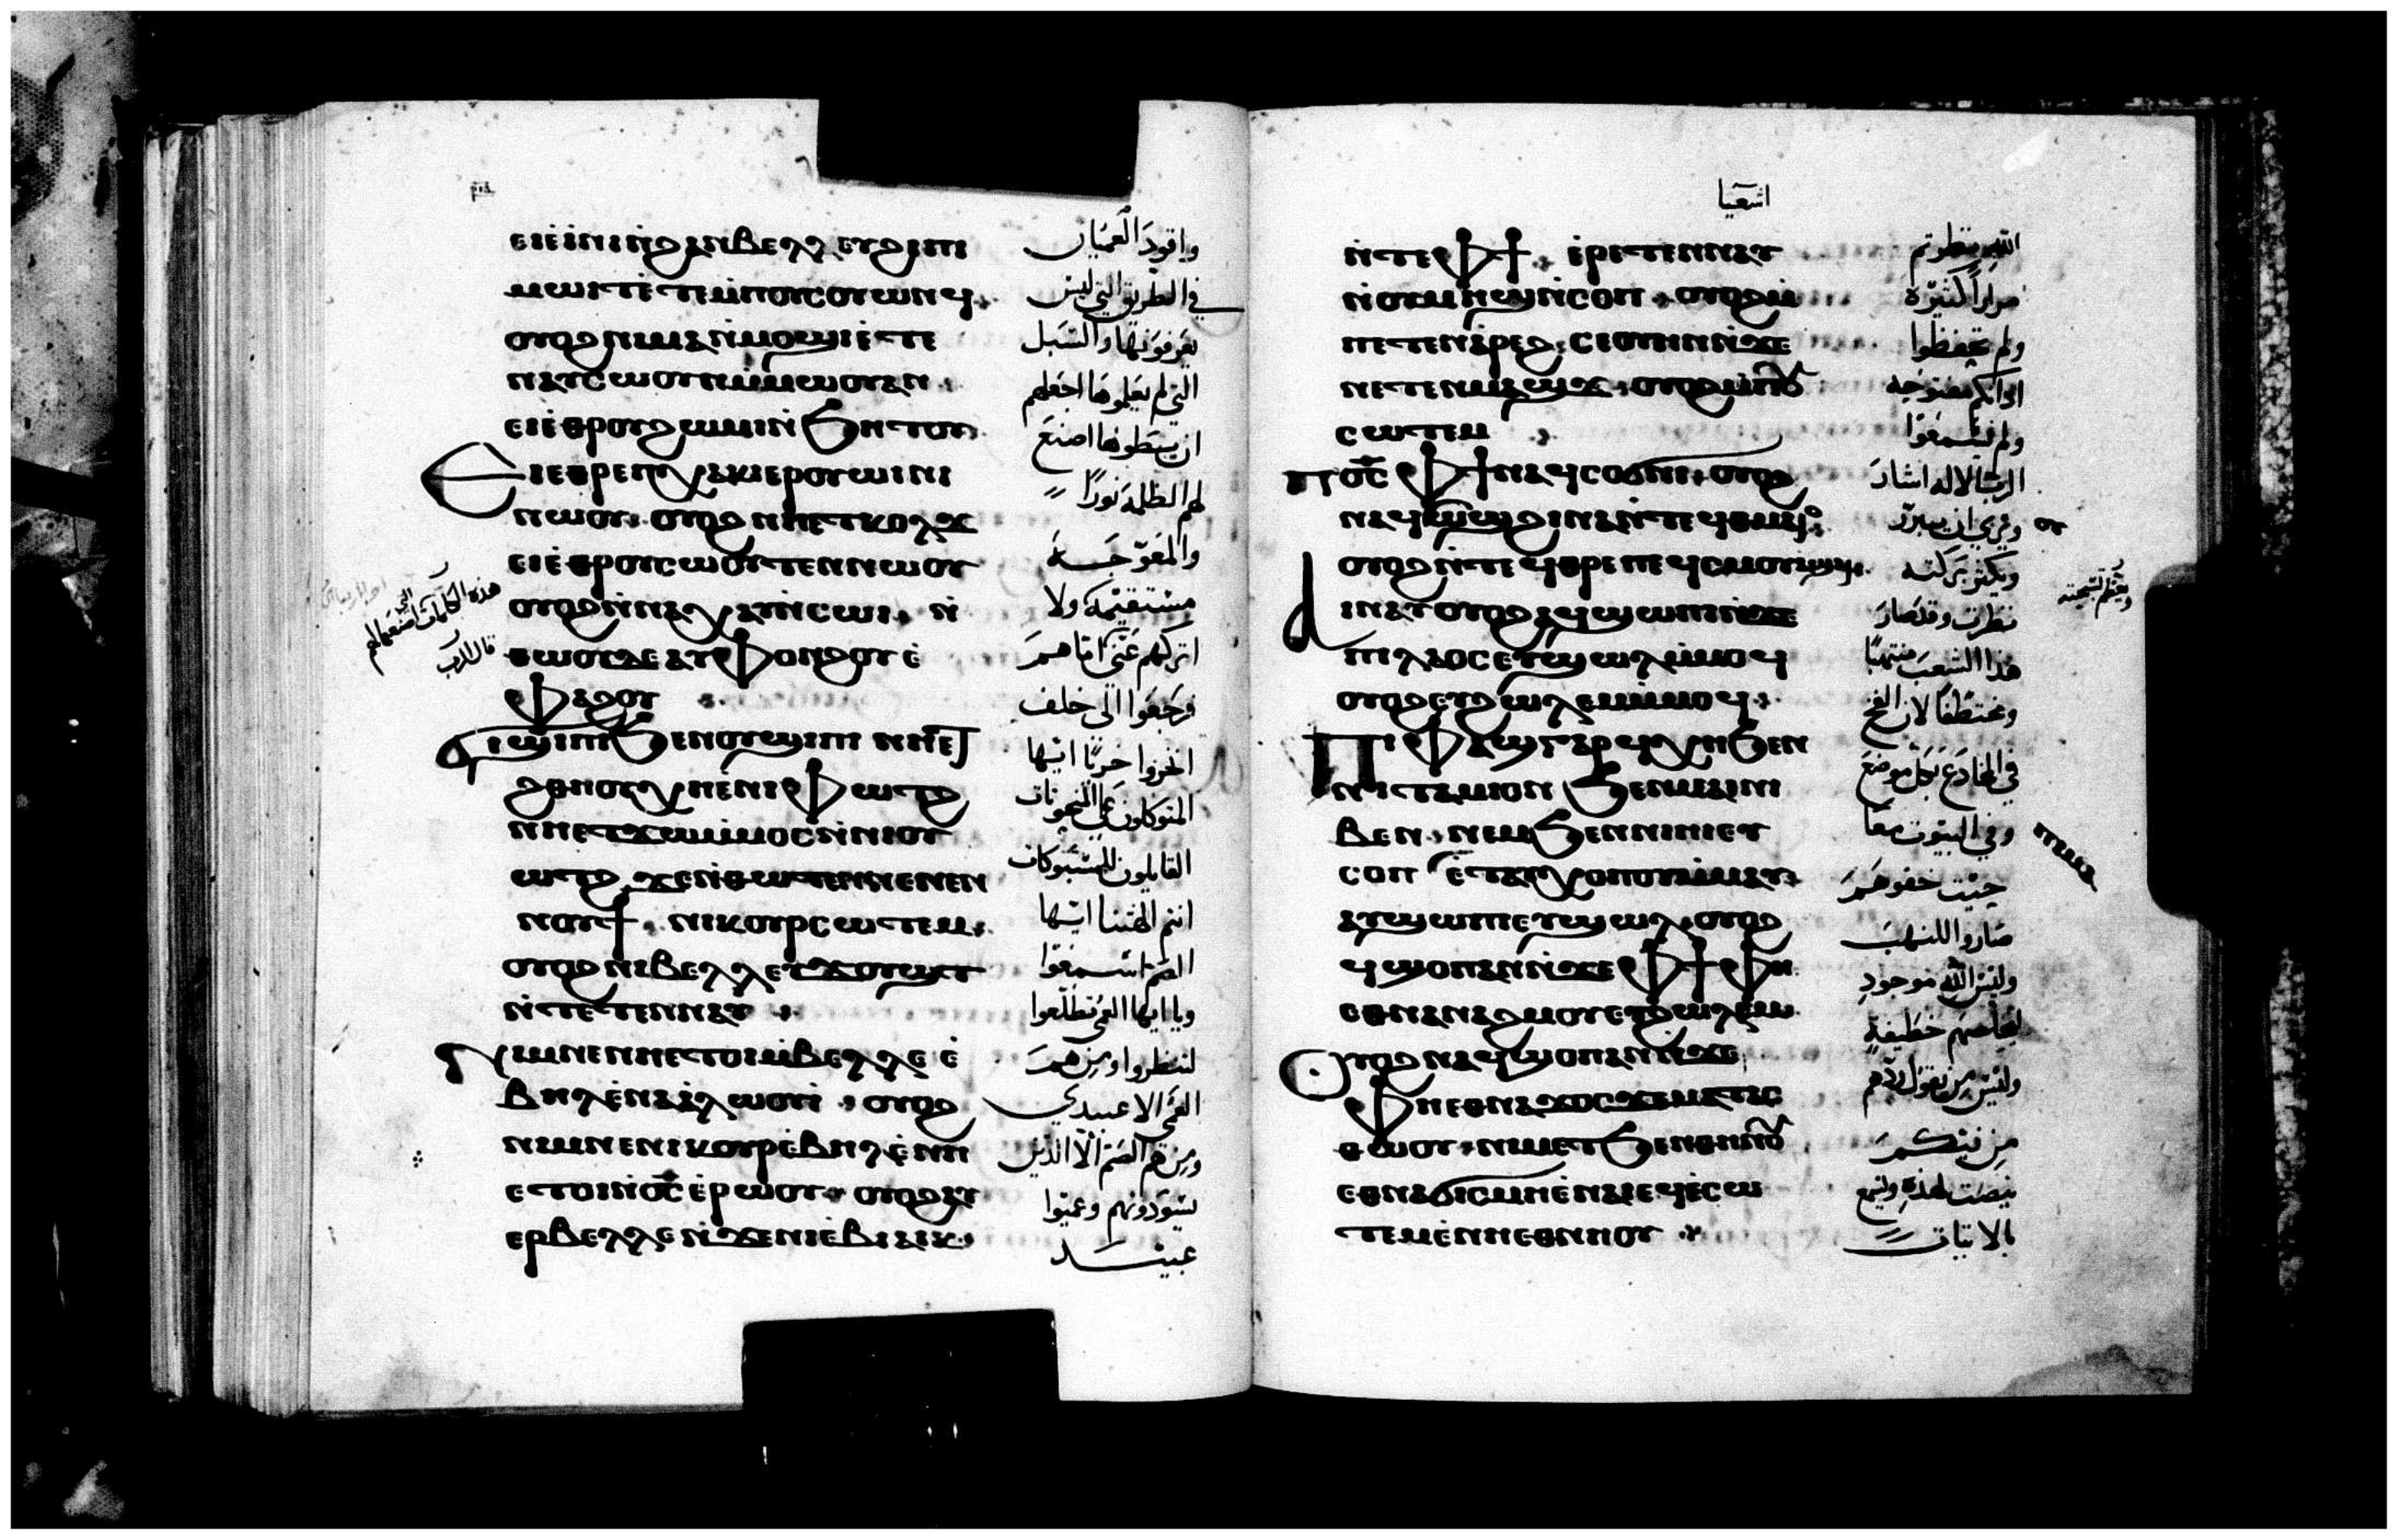 ⲣⲓⲇ
ⲉⲓⲉ̀ⲓⲛⲓⲛ̀ϩⲁⲛⲃⲉⲗⲗⲉⲩϩⲓⲡⲓ
ⲙⲱⲓⲧⲉ̀ⲧⲉⲙ̀ⲡⲟⲩⲥⲟⲩⲱⲛϥ
ⲟⲩⲟϩⲛⲓⲙⲁⲛ̀ⲙⲟϣⲓⲉ̀ⲧⲉ
ⲛⲁⲩⲥⲱⲟⲩⲛⲙ̀ⲙⲱⲟⲩⲁⲛ
ⲉⲓⲉ̀ⲑⲣⲟⲩϩⲱⲙⲓⲛ̀ϧⲏⲧⲟⲩ
Ⲉⲓⲉⲑⲣⲉⲡⲭⲁⲕⲓⲉⲣⲟⲩⲱⲓⲛⲓ
ⲛⲱⲟⲩ ⲟⲩⲟϩⲛⲏⲉⲧⲕⲟⲗϫ
ⲉⲓⲉ̀ⲑⲣⲟⲩⲥⲱⲟⲩⲧⲉⲛⲛⲱⲟⲩ
ⲟⲩⲟϩⲛ̀ⲛⲁⲭⲁⲩⲛ̀ⲥⲱⲓ ⲛ̀
ⲑⲱⲟⲩⲇⲉⲁⲩⲫⲟⲛϩⲟⲩⲉ̀
ⲫⲁϩⲟⲩ
ϭⲓϣⲓⲡⲓϧⲉⲛⲟⲩϣⲓⲡⲓ ⲛⲏⲉⲧ
ϩⲑⲏⲟⲩⲭⲏⲉ̀ⲛⲓⲫⲱⲧϩ
ⲛⲏⲉⲧϫⲱⲙ̀ⲙⲟⲥⲛ̀ⲛⲓⲟⲩ
ⲱⲧϩ ϫⲉⲛ̀ⲑⲱⲧⲉⲛⲛⲉⲛⲉⲛ
ⲛⲟⲩϯ ⲛⲓⲕⲟⲩⲣⲥⲱⲧⲉⲙ
ⲟⲩⲟϩⲛⲓⲃⲉⲗⲗⲉⲩϫⲟⲩϣⲧ
ⲛ̀ⲧⲉⲧⲉⲛⲛⲁⲩ
ⲛⲓⲙⲛⲉⲛⲏⲉⲧⲟⲓⲙ̀ⲃⲉⲗⲗⲉ ⲉ̀
ⲃⲏⲗⲉ̀ⲛⲁⲁ̀ⲗⲱⲟⲩⲓ̀ ⲟⲩⲟϩ
ⲛⲓⲙⲛⲉⲛⲓⲕⲟⲩⲣⲉ̀ⲃⲏⲗⲉ̀ⲛⲏ
ⲉⲧⲟⲓⲛ̀ⲟ̅ⲥ̅ⲉ̀ⲣⲱⲟⲩ ⲟⲩⲟϩⲁⲩ
ⲉⲣⲃⲉⲗⲗⲉⲛ̀ϫⲉⲛⲓⲉ̀ⲃⲓⲁⲓⲕ
واقود العميان
في الطريق التي ليس
يعرفونها والسبل
التي لم يعلموها اجعلهم
ان يسطوها اصنع
لهم الظلمة نورا
والمعوجة
مستقيمة ولا
اتركهم عني اما هم
فرجعوا الى خلف
اخزوا خزيا ايها
المتوكلون على المنحوتات
القايلون للمسبوكات
انتم الهتنا ايها
الصم اسمعوا
ويا ايها العمي تطلعوا
لتنظروا ومن هم
العمي الا عبيدي
ومن هم الصم الا الذين
يسودونهم وعميوا
عبيد
هذه الكلمات التي اصنعها لهم
قال الرب
اشعيا
ⲛ̀ⲧⲉⲫϯ ⲉ̀ⲣⲉⲧⲉⲛⲛⲁⲩ
ⲛ̀ⲟⲩⲙⲏϣⲛ̀ⲥⲟⲡ ⲟⲩⲟϩⲙ̀
ⲡⲉⲧⲉⲛⲁ̀ⲣⲉϩ ⲥⲉⲟⲩⲏⲛⲛ̀ϫⲉ
ⲛⲉⲧⲉⲛⲙⲁϣϫ ⲟⲩⲟϩⲙ̀ⲡⲟⲩ
ⲥⲱⲧⲉⲙ
ⲡⲟ̅ⲥ̅ ⲫϯⲛⲁϥⲥⲟϭⲛⲓ ⲟⲩⲟϩ
ⲛⲁϥⲟⲩⲱϣϩⲓⲛⲁⲛ̀ⲧⲉϥⲑⲙⲁⲓⲟ
ⲟⲩⲟϩⲛ̀ⲧⲉϥⲑⲣⲉⲡⲉϥⲥⲙⲟⲩⲁϣⲁⲓ
Ⲁⲓⲛⲁⲩⲟⲩⲟϩⲁϥϣⲱⲡⲓⲛ̀ϫⲉ
ⲡⲓⲗⲁⲟⲥⲉⲩϣⲱⲗⲙ̀ⲙⲟϥ
ⲟⲩⲟϩⲉⲩϩⲱⲗⲉⲙⲙ̀ⲙⲟϥ
Ⲡⲓⲫⲁϣⲅⲁⲣϥⲭⲏϧⲉⲛ
ⲛⲓⲧⲁⲙⲓⲟⲛ ϧⲉⲛⲙⲁⲓⲛⲓ
ⲃⲉⲛ ⲛⲉⲙϧⲉⲛⲛⲓⲏⲓⲉⲩ
ⲥⲟⲡ ⲉ̀ⲧⲁⲩⲭⲟⲡⲟⲩⲙ̀ⲙⲁⲩ
ⲁⲩϣⲱⲡⲓⲉⲩϣⲱⲗ ⲟⲩⲟϩ
ϥϣⲟⲡⲁⲛⲛ̀ϫⲉⲫϯ ⲫⲏ
ⲉⲑⲛⲁⲛⲁϩⲙⲟⲩⲉⲩϩⲱⲗⲉⲙ
Ⲟⲩⲟϩⲛⲁϥϣⲟⲡⲁⲛⲛ̀ϫⲉ
ⲫⲏⲉⲑⲛⲁϫⲟⲥϫⲉⲙⲁⲧⲁⲥ
ⲑⲱⲟⲩ ⲛⲓⲙⲉⲧϧⲉⲛⲑⲏⲛⲟⲩ
ⲉⲑⲛⲁϭⲓⲥⲙⲏⲉ̀ⲛⲁⲓⲉϥⲉ̀ⲥⲱ
ⲧⲉⲙⲉ̀ⲛⲏⲉⲑⲛⲏⲟⲩ
الله ينظرتم
مرارا كثيرة
ولم تحفظوا
اذانكم مفتوحة
ولم فتسمعوا
الرب الاله اشار
ويرى ان يبرر
ويكثر بركته
نظرت وقد صار
هذا الشعب منتهبا
ومختطفا لان الفخ
في المخادع بكل موضع
وفي البيوت معا
حيث خفوهم
صاروا للنهب
وليس الله موجود
خطيفة
وليس من يقول ردهم
من فيكم
ينصت لهذه وليسمع
بالاتيات
ويعظم تسبحته